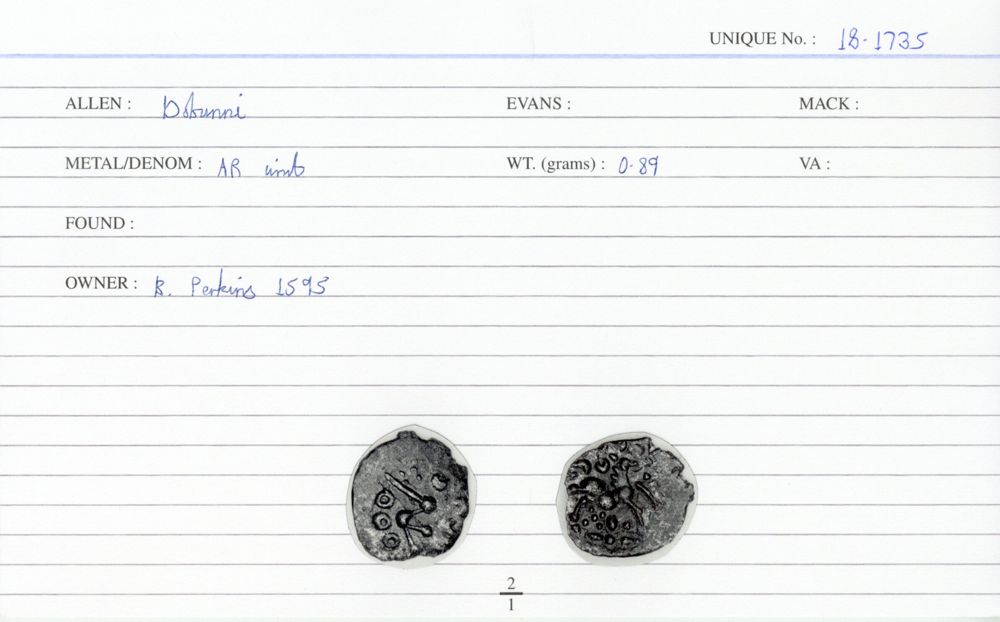 UNIQUE No. : 18-1735
ALLEN : Dobunni EVANS : MACK :
METAL/DENOM : AR unit WT. (grams) : 0.89 VA :
FOUND :
OWNER : B. Perkins 1595
2
1